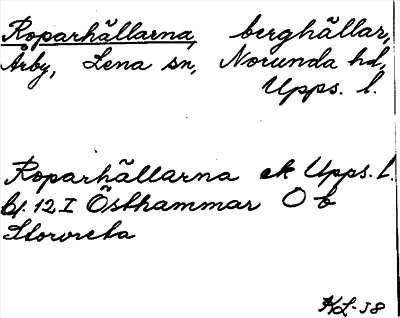 Roparhällarna, berghällar,
Årby, Lena sn, Norunda hd,
Upps. l.
Roparhällarna ek Upps. l.
bl. 12 I Östhammar O b
Storvreta
KL-38